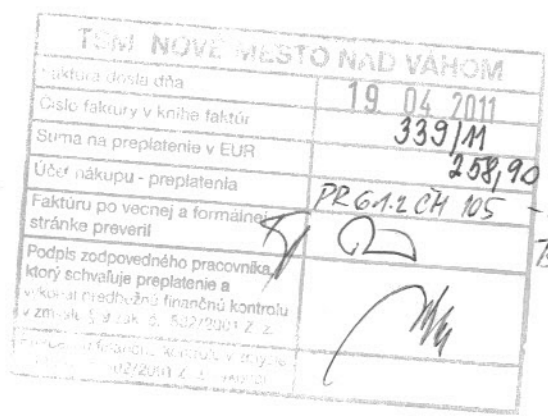 TSM NOVÉ MESTO NAD VÁHOM
Faktúra došla dňa 19 04 2011
Číslo faktúry v knihe faktúr 339/11
Suma na preplatenie v EUR 258,90
Účel nákupu - preplatenia PR 6.1.2 ČH 105 -
Faktúru po vecnej a formálnej
stránke preveril
Podpis zodpovedného pracovníka,
ktorý schvaľuje preplatenie a
vykonal predbežnú finančnú kontrolu
v zmysle § 9 zák. č. 502/2001 Z. z.
finančnú kontrolu v zmysle
502/2001 Z. z.